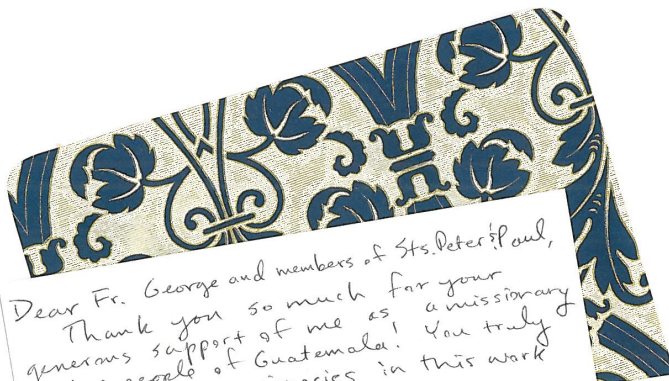 Dear Fr. George and members of Sts. Peter & Paul,
Thank you so much for your
generous support of me as a missionary
people of Guatemala! You truly
in this work